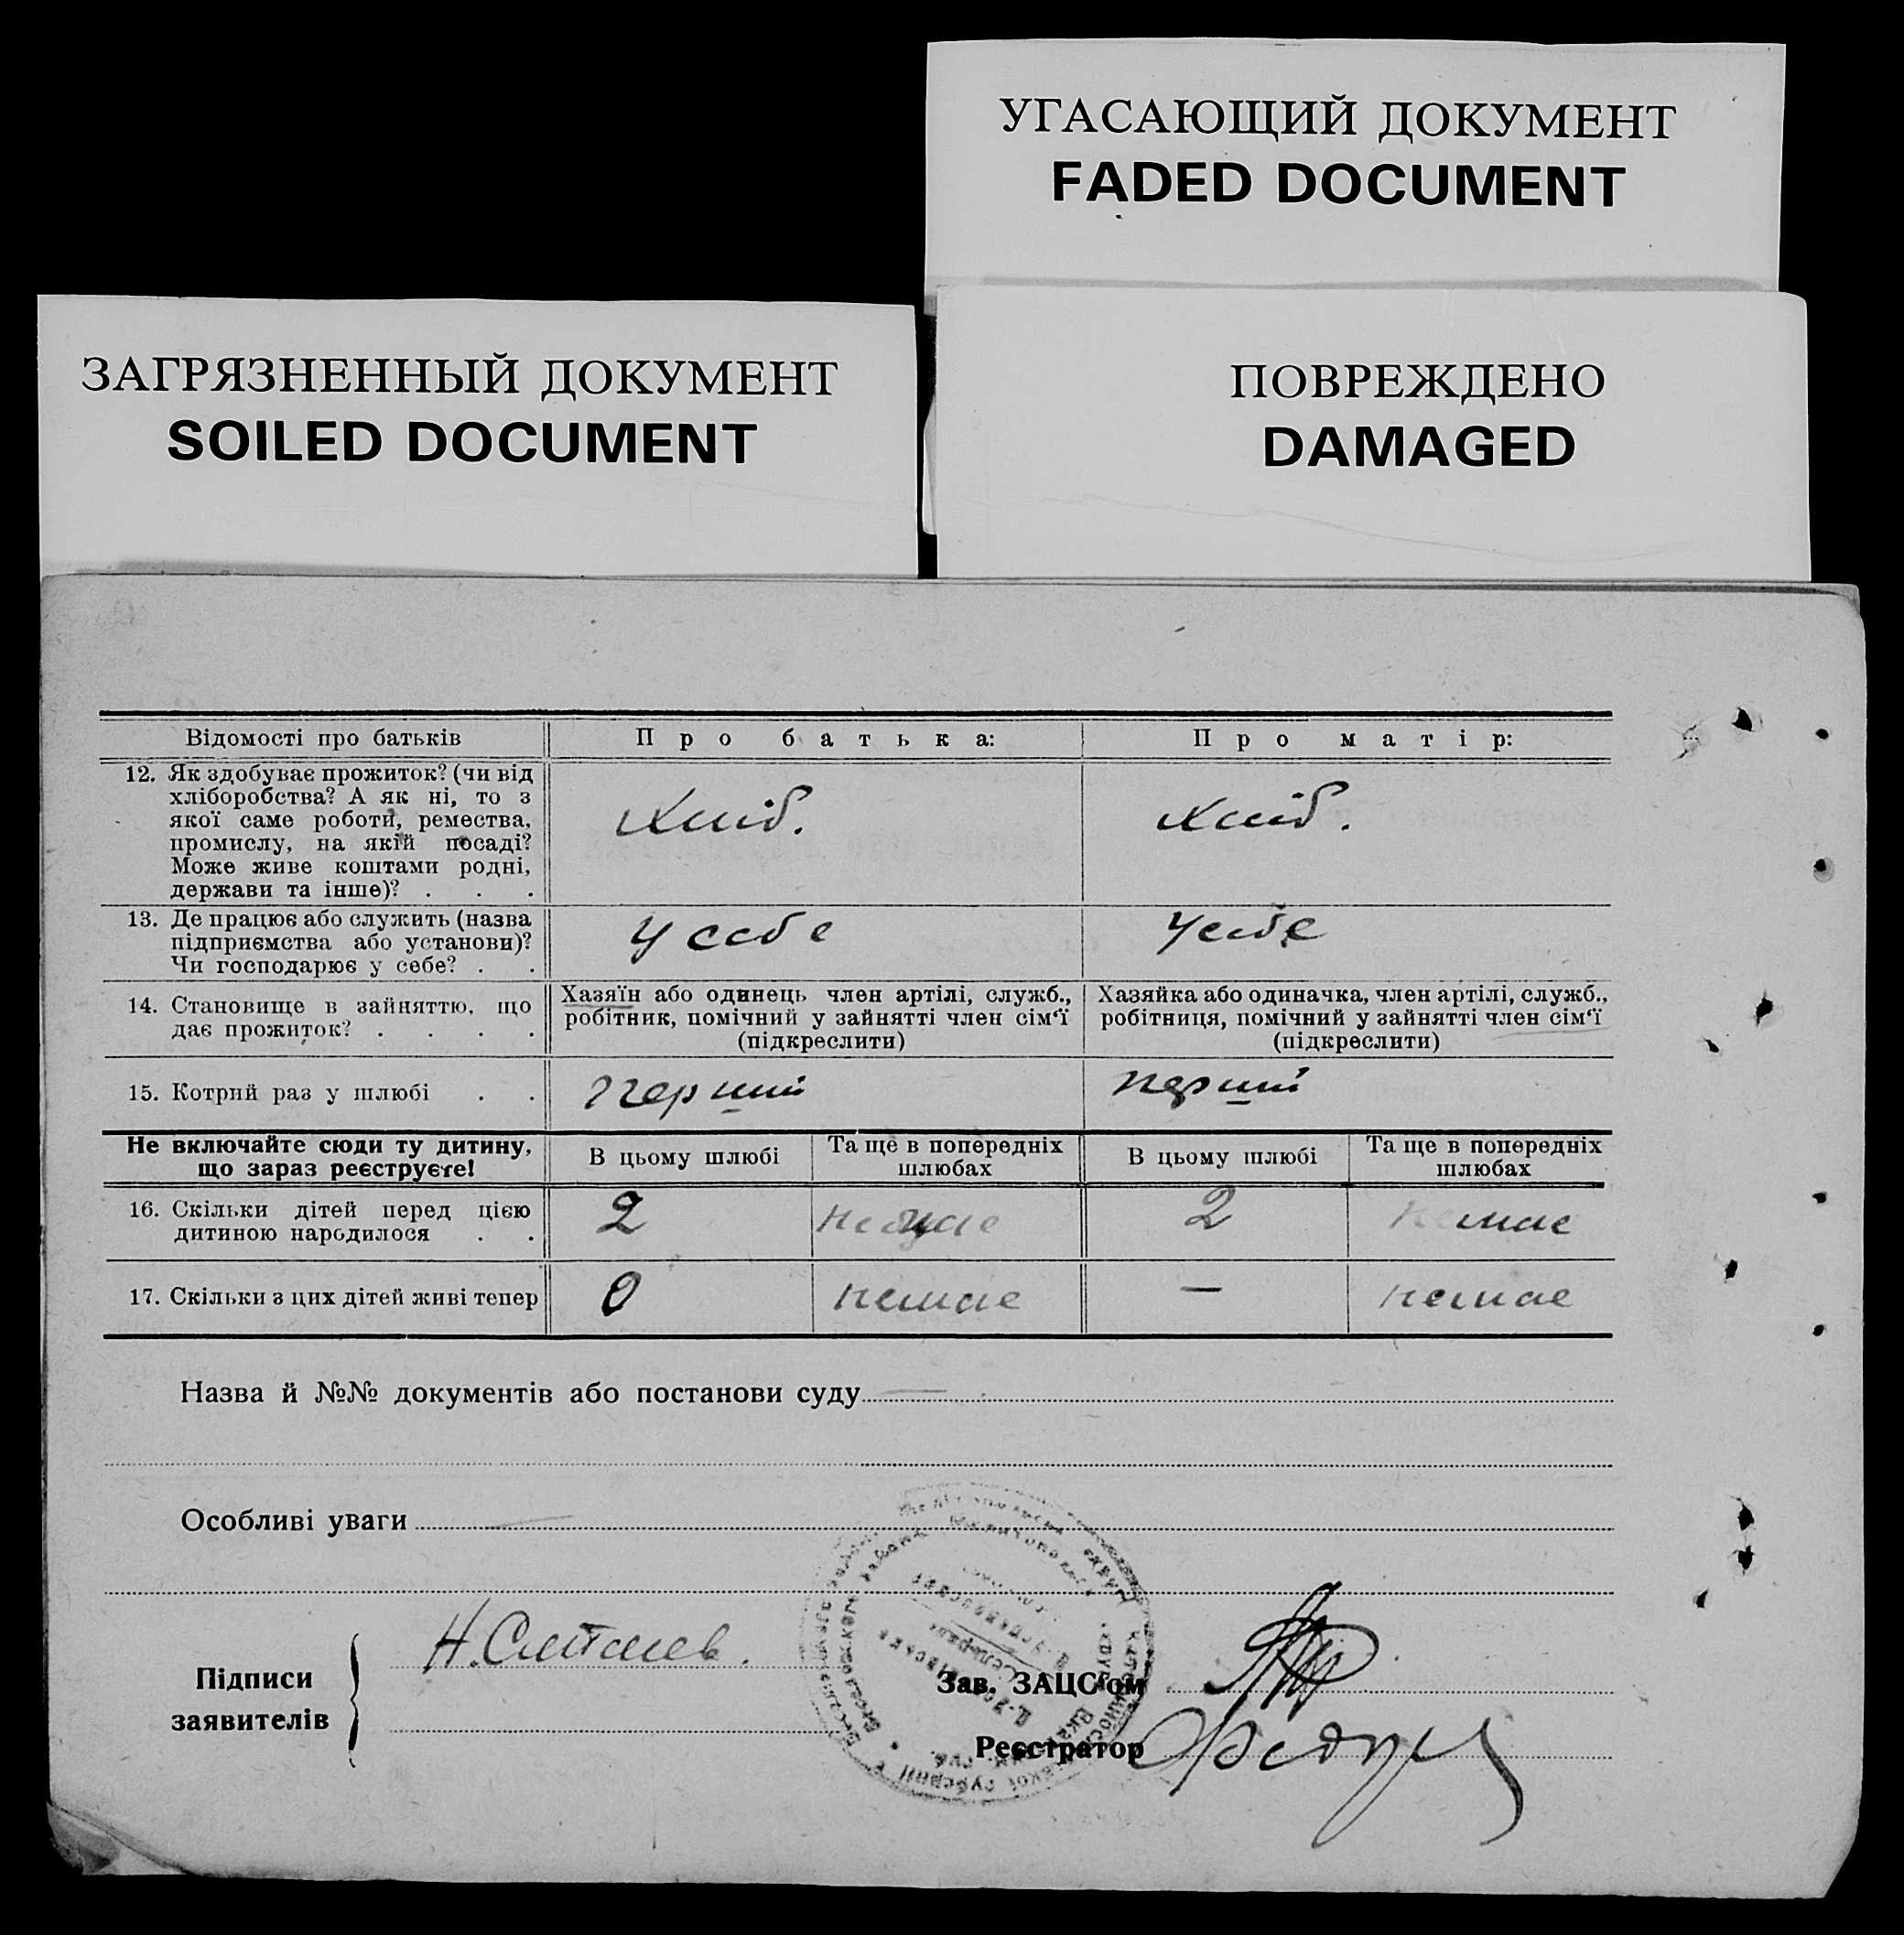 УГАСАЮЩИЙ ДОКУМЕНТ
FADED DOCUMENT
ЗАГРЯЗНЕННЫЙ ДОКУМЕНТ
SOILED DOCUMENT
ПОВРЕЖДЕНО
DAMAGED
Відомості про батьків
Про батька:
Про матір:
12. Як здобуває прожиток? (чи від
хліборобства? А як ні, то з
якої саме роботи, ремества,
промислу, на якій посаді?
Може живе коштами родні,
держави та інше)? . . .
Хліб.
Хліб.
13. Де працює або служить (назва
підприємства або установи)?
Чи господарює у себе? . .
У себе
У себе
14. Становище в зайняттю, що
дає прожиток? . . . .
Хазяїн або одинець член артілі, служб.,
робітник, помічний у зайнятті член сім‘ї
(підкреслити)
Хазяйка або одиначка, член артілі, служб.,
робітниця, помічний у зайнятті член сім‘ї
(підкреслити)
15. Котрий раз у шлюбі . .
перший
перший
Не включайте сюди ту дитину,
що зараз реєструєте!
В цьому шлюбі
Та ще в попередніх
шлюбах
В цьому шлюбі
Та ще в попередніх
шлюбах
16. Скільки дітей перед цією
дитиною народилося . .
2
немає
2
немає
17. Скільки з цих дітей живі тепер
0
немає
—
немає
Назва й №№ документів або постанови суду
Особливі уваги
Підписи
заявителів
Н.
Зав. ЗАЦС‘ом
Реєстратор